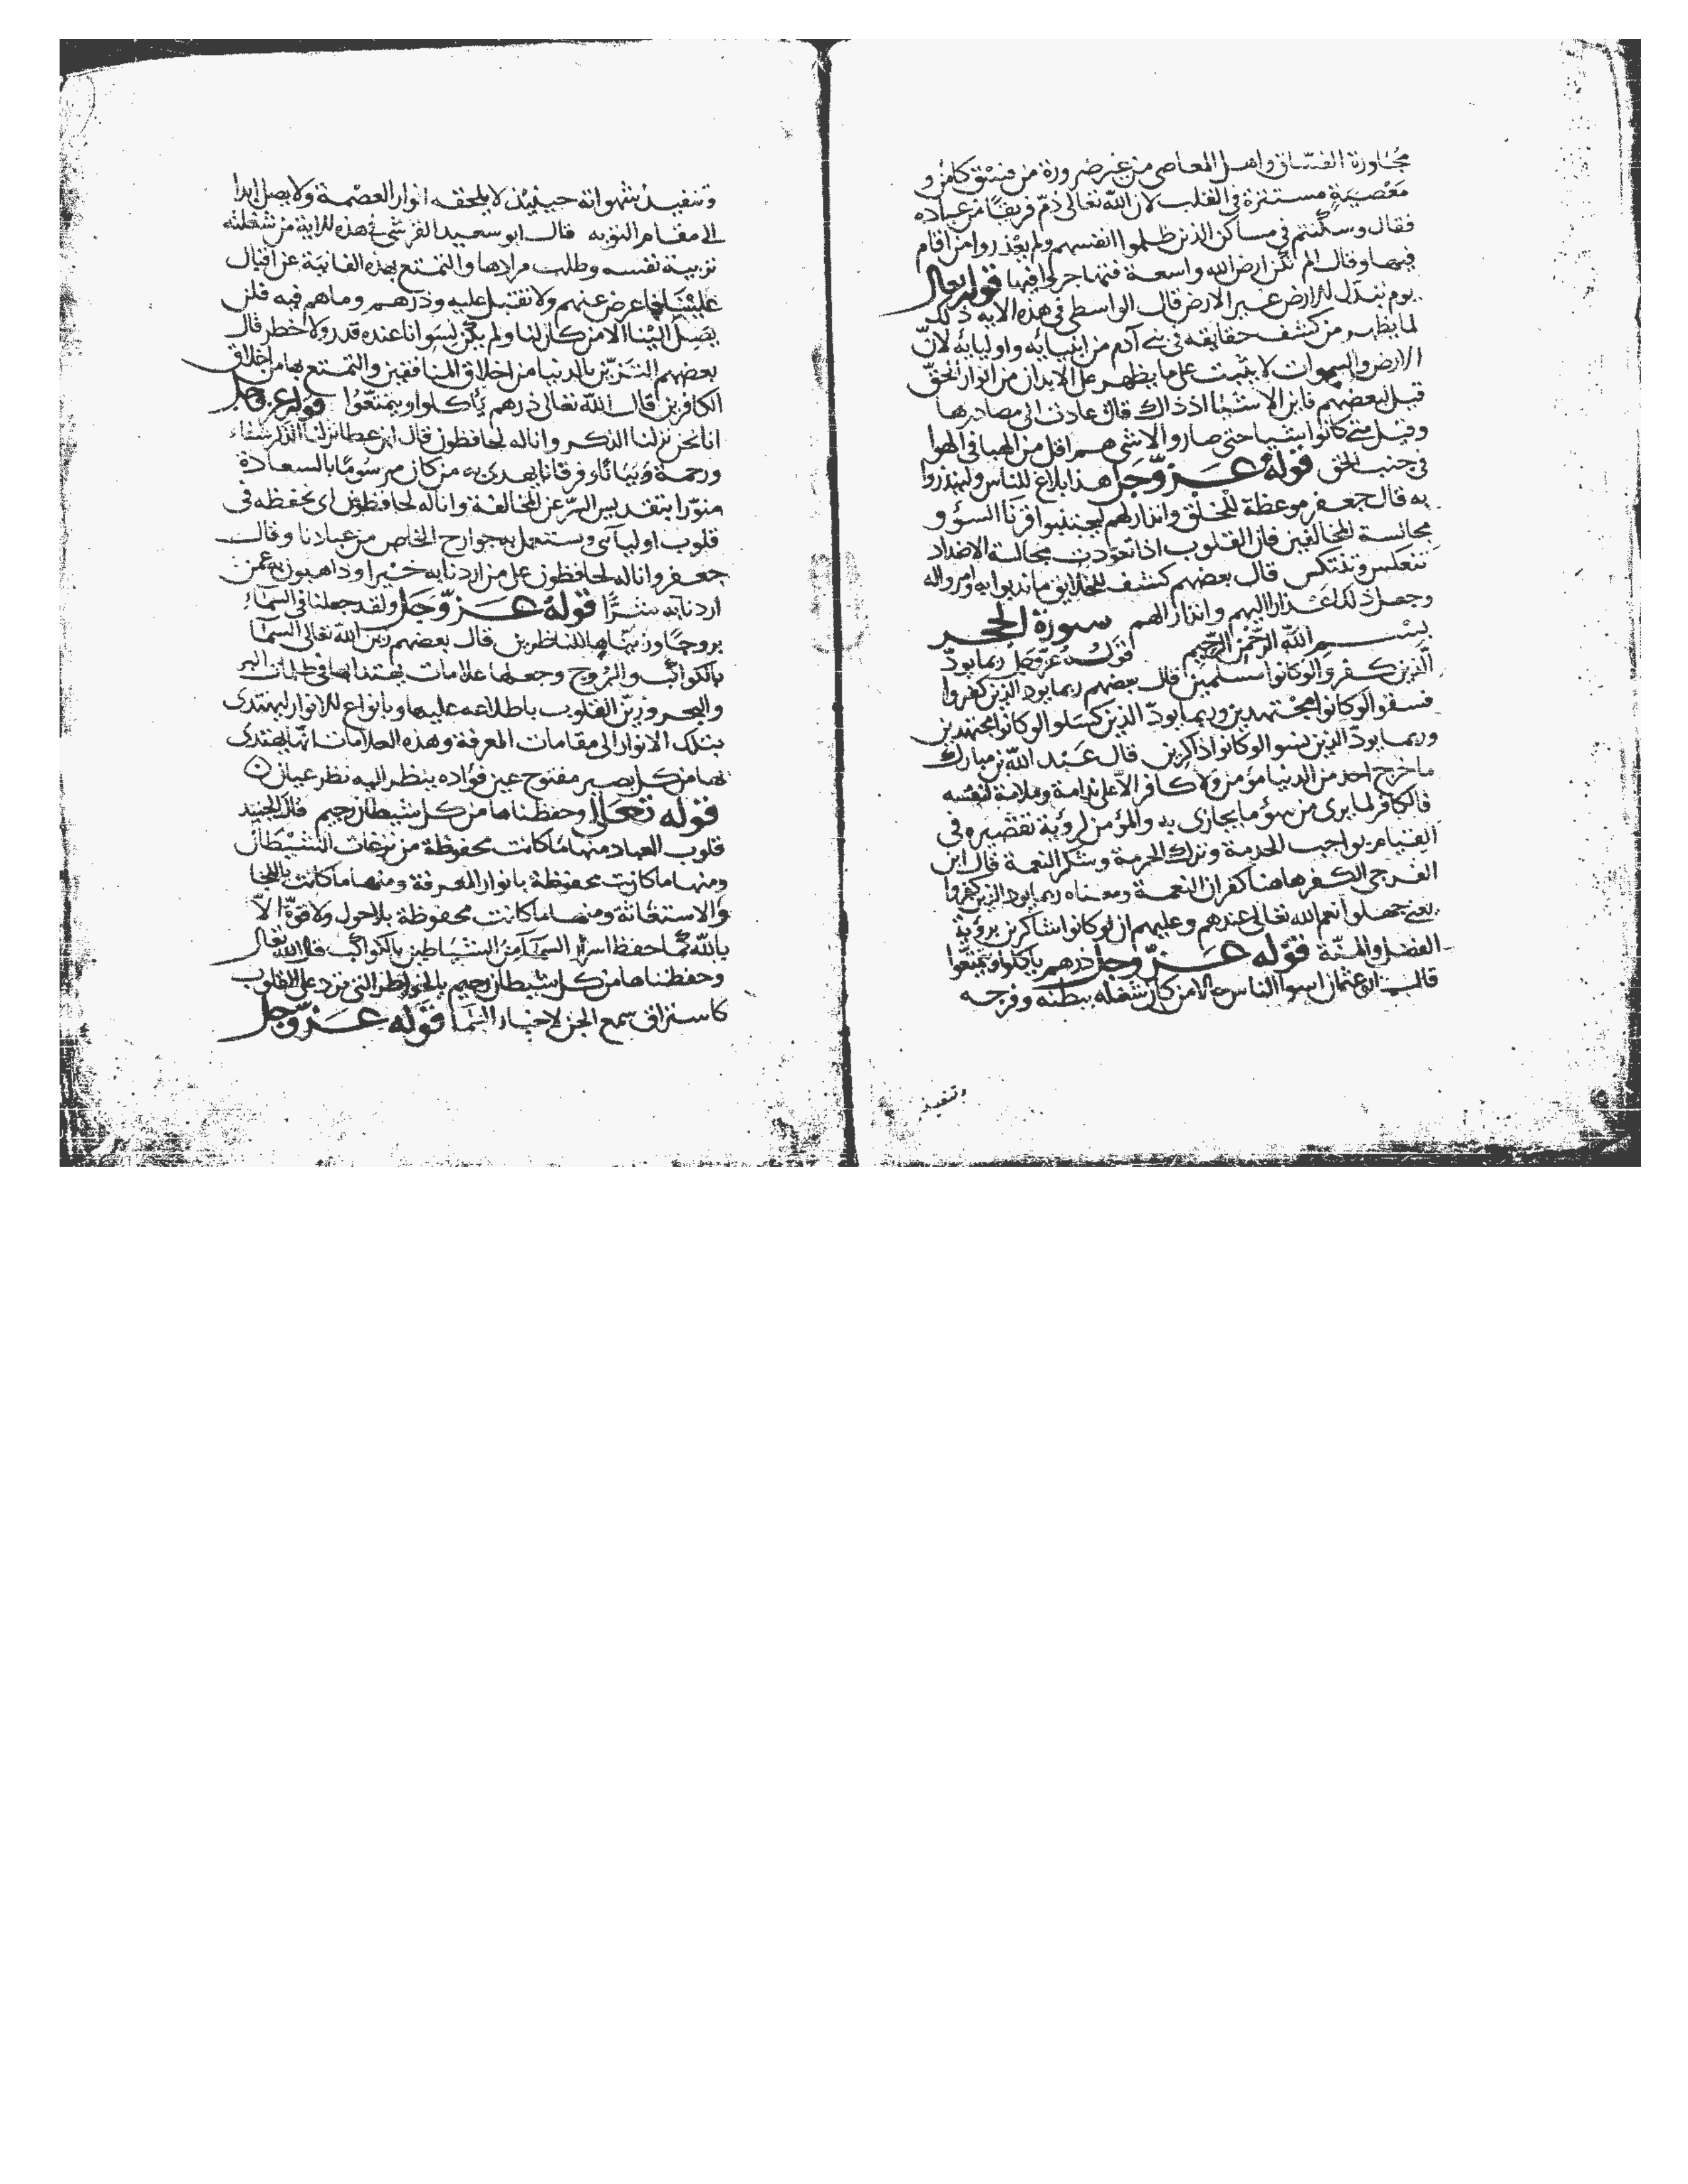 مجاورة الفساق واهل المعاصي من غير ضرورة من فسق كامن و
معصية مستترة في القلب لان الله تعالى ذم فريقا من عباده
فقال وسكنتم في مساكن الذين ظلموا انفسهم ولم يعذروا من اقام
فيها وقال الم تكن ارض الله واسعة فتهاجروا فيها قوله تعالى
يوم تبدل الارض غير الارض قال الواسطي في هذه الاية ذلك
لما يظهر من كشف حقايقه في بني آدم من انبيائه واوليائه لان
الارض والسموات لا يثبت على ما يظهر على الابدان من انوار الحق
قيل لبعضهم فاين الاشياء اذ ذاك قال عادت الى مصادرها
وقيل متى كانوا شيا حتى صاروا لا شي هم اقل من الهبا في الهوا
في جنب الحق قوله عز وجل هذا بلاغ للناس ولينذروا
به قال جعفر موعظة للخلق وانذار لهم ليجتنبوا قرنا السوء و
مجانسة المخالفين فان القلوب اذا تعودت مجالسة الاضداد
تنعكس وتنتكس قال بعضهم كشف للخلايق ما ندبوا به وامروا له
وجعل ذلك اعذارا اليهم وانذارا لهم سورة الحجر
بسم الله الرحمن الرحيم قوله عز وجل ربما يود
الذين كفروا لو كانوا مسلمين قال بعضهم ربما يود الذين كفروا
فسقوا لو كانوا مجتهدين وربما يود الذين كسلوا لو كانوا مجتهدين
وربما يود الذين نسوا لو كانوا ذاكرين قال عبد الله بن مبارك
ما خرج احد من الدنيا مؤمن ولا كافر الا على ندامة وملامة لنفسه
فالكافر لما يرى من سوء ما يجازى به والمؤمن لرؤية تقصيره في
القيام بواجب الخدمة وترك الحرمة وشكر النعمة قال ابن
الفرجي الكفر هاهنا كفران النعمة ومعناه ربما يود الذين كفروا
يعني جهلوا نعم الله تعالى عندهم وعليهم ان لو كانوا شاكرين برؤية
الفضل والمنة قوله عز وجل ذرهم ياكلوا ويتمتعوا
قال ابو عثمان اسوا الناس حالا من كان شغله ببطنه وفرجه
وتنفيذ
وتنفيذ شهواته حينيذ لا يلحقه انوار العصمة ولا يصل ابدا
الى مقام التوبه قال ابو سعيد القرشي في هذه الاية من شغلته
تربية نفسه وطلب مرادها والتمتع بهذه الفانية عن اقبال
علينا فاعرض عنهم ولا تقبل عليه وذرهم وما هم فيه فلن
يصل الينا الا من كان لنا ولم يكن لسوانا عنده قدر ولا خطر قال
بعضهم التزين بالدنيا من اخلاق المنافقين والتمتع بها من اخلاق
الكافرين قال الله تعالى ذرهم ياكلوا ويتمتعوا قوله عز وجل
انا نحن نزلنا الذكر وانا له لحافظون قال ابن عطا نزلنا الذكر شفاء
ورحمة وبيانا وفرقانا يهدى به من كان موسوما بالسعادة
منورا بتقديس السر عن المخالفة وانا له لحافظون اي نحفظه في
قلوب اوليائي ويستعمل به جوارح الخاص من عبادنا وقال
جعفر وانا له لحافظون على من اردنا به خيرا وذاهبون به عمن
اردنا به شرا قوله عز وجل ولقد جعلنا في السماء
بروجا وزيناها للناظرين قال بعضهم زين الله تعالى السما
بالكواكب والبروج وجعلها علامات يهتدا بها في ظلمات البر
والبحر وزين القلوب باطلاعه عليها وبانواع الانوار ليهتدى
بتلك الانوار الى مقامات المعرفة وهذه العلامات انما يهتدى
بها من كل بصير مفتوح عين فؤاده ينظر اليه نظر عيان
قوله تعالى وحفظناها من كل شيطان رجيم قال الجنيد
قلوب العباد منها ما كانت محفوظة من نزغات الشيطان
ومنها ما كانت محفوظة بانوار المعرفة ومنها ما كانت بالالتجا
والاستغاثة ومنها ما كانت محفوظة بلا حول ولا قوة الا
بالله كما حفظ اسرار السما من الشياطين بالكواكب قال الله تعالى
وحفظناها من كل شيطان رجيم بالخواطر التي ترد على القلوب
كاستراق سمع الجن لاخبار السما قوله عز وجل